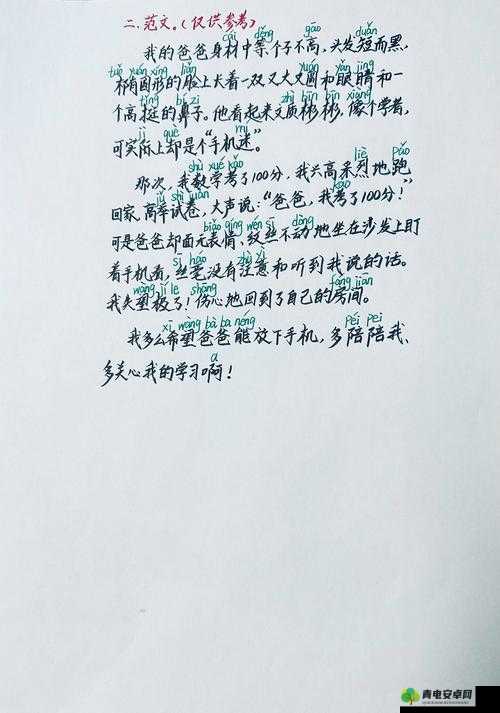 二.范文。(仅供参考)
cái děng gāo duǎn
我的爸爸身材中等个子不高,头发短而黑,
tuǒ yuán xíng liǎn yuán yǎn jing
椭圆形的脸上长着一双又大又圆和眼睛和一
tǐng bí zi zhì bīn bīn xiàng
个高挺的鼻子。他看起来文质彬彬,像个学者,
jì què mí
可实际上却是个“手机迷。
shù xué kǎo liè pǎo
那次,我数学考了100分,我兴高采烈地跑
jǔ shì juàn kǎo
回家,高举试卷,大声说:“爸爸,我考了100分!”
biǎo qíng wén sī dòng
可是爸爸却面无表情,纹丝不动地坐在沙发上盯
sī háo zhù yì
着手机看,丝毫没有注意和听到我说的话。
wàng jí le shāng fáng jiān
我失望极了!伤心地回到了自己的房间。
xī wàng bà ba néng péi péi
我多么希望爸爸能放下手机,多陪陪我、
a
多关心我的学习啊!
青电安卓网